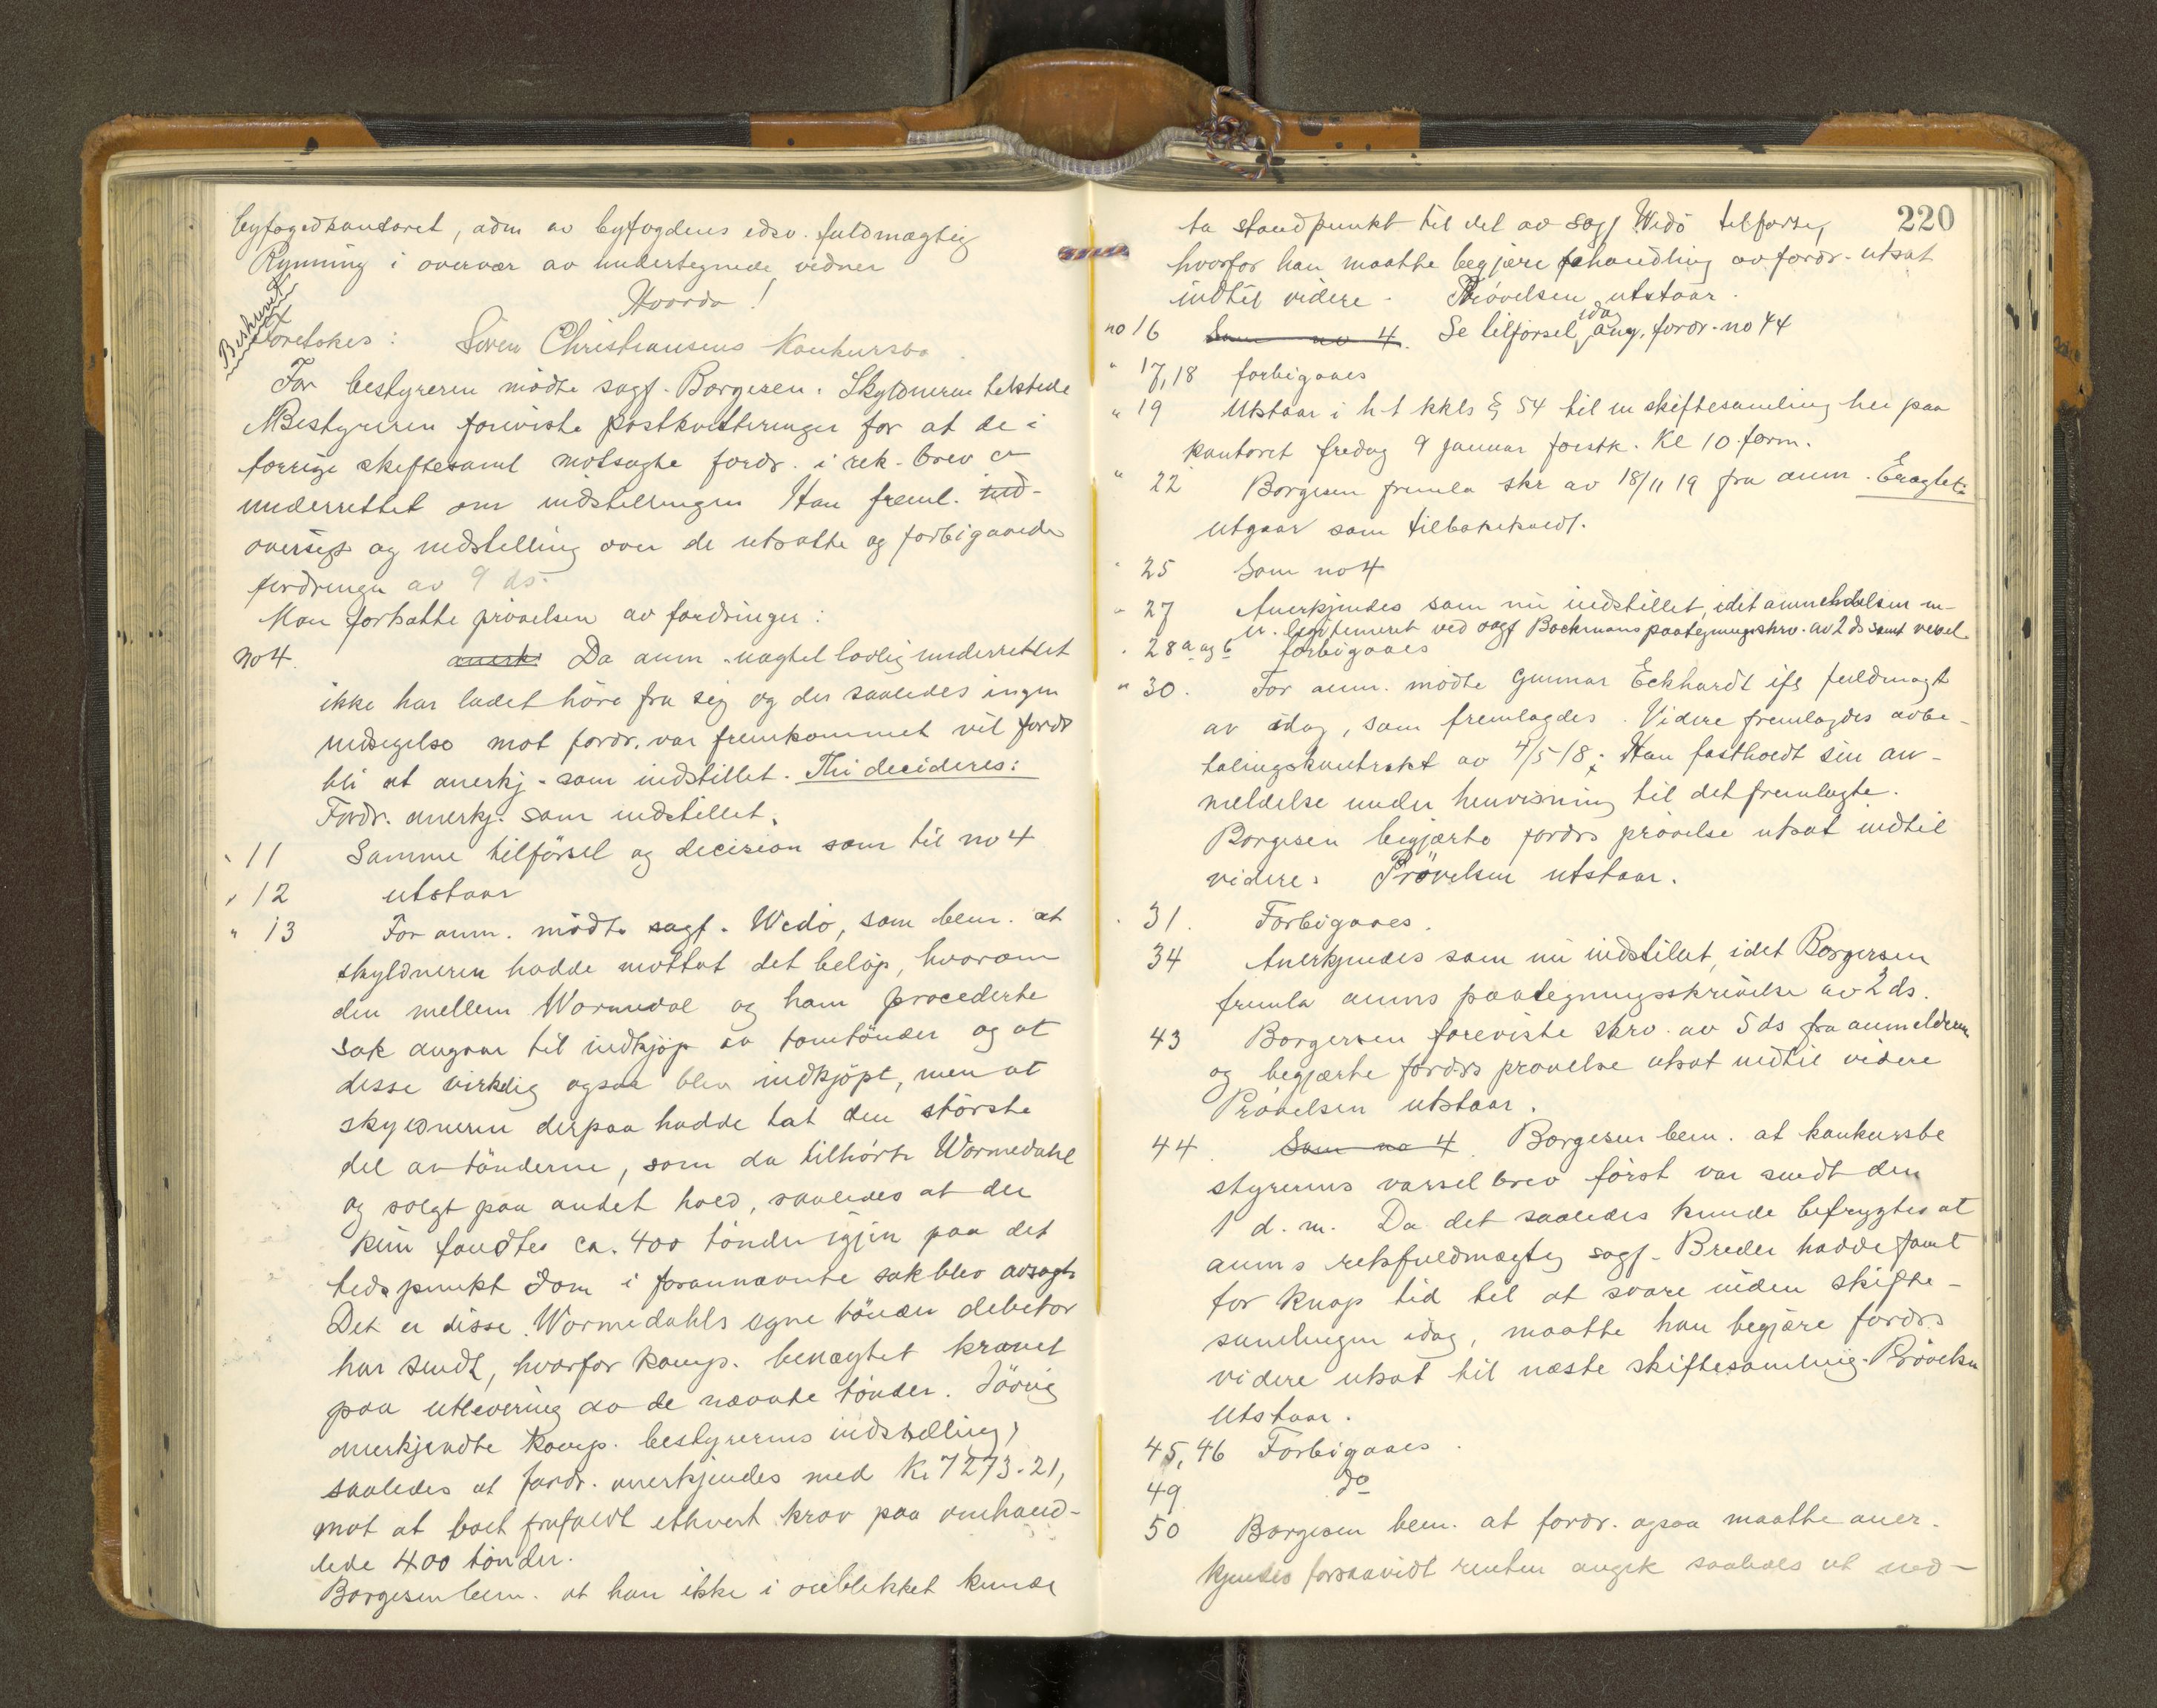 byfogedkontoret, adm av byfogdens edsv. fuldmægtig
Rynning i overvær av undertegnede vidner
Hvorda!
Beskrevet
Foretokes: Sören Christiansens Konkursbo.
For bestyreren mödte sagf. Borgesen. Skyldneren tilstede
Bestyreren foreviste postkvitteringer for at de i
forrige skiftesaml motsagte fordr. i rek. brev er
underrettet om indstillingen Han freml. ind-
oversigt og indstilling over de utsatte og forbigaaede
fordringer av 9 ds.
Man fortsatte prövelsen av fordringer:
no 4. anerk Da anm. uagtet lovlig underrettet
ikke har ladet höre fra sig og der saaledes ingen
indsigelse mot fordr. var fremkommet vil fordr
bli at anerkj. som indstillet. Thi decideres:
Fordr. anerkj. som indstillet.
" 11 Samme tilförsel og decision som til no 4
" 12 utstaar
" 13 For anm. mödte sagf. Wedö, som bem. at
skyldneren hadde mottat det belöp, hvorom
den mellem Wormedal og ham procederte
sak angaar til indkjöp av tomtönder og at
disse virkelig ogsaa blev indkjöpt, men at
skyldneren derpaa hadde tat den störste
del av tönderne, som da tilhörte Wormedahl
og solgt paa andet hold, saaledes at der
kun fandtes ca. 400 tönder igjen paa det
tidspunkt dom i forannævnte sak blev avsagt.
Det er disse Wormedahls egne tönder debitor
har sendt, hvorfor komp. benægtet kravet
paa utlevering av de nævnte tönder. Iövrig
anerkjendte komp. bestyrerens indstilling,
saaledes at fordr. anerkjendes med Kr 7273.21,
mot at boet frafaldt ethvert krav paa omhand-
lede 400 tönder.
Borgesen bem. at han ikke i öieblikket kunde
220
ta standpunkt til det av sagf Wedö tilförte,
hvorfor han maatte begjære behandling av fordr. utsat
indtil videre. Prövelsen utstaar.
no 16 Som no 4. Se tilförsel idag ang. fordr. no 44
" 17, 18 forbigaaes
" 19 Utstaar i h t kkls § 54 til en skiftesamling her paa
kontoret fredag 9 januar förstk. Kl 10 form.
" 22 Borgesen fremla skr av 18/11 19 fra anm. Eragtet:
Utgaar som tilbakekaldt.
" 25 Som no 4
" 27 Anerkjendes som nu indstillet, idet anmeldelsen nu
er legitimeret ved sagf Bockmans paategningsskrv. av 2 ds samt vexel.
" 28 a og b forbigaaes
" 30. For anm. mödte Gunnar Eckhardt ifl fuldmagt
av idag, som fremlagdes. Videre fremlagdes avbe-
talingskontrakt av 4/5 18; Han fastholdt sin an-
meldelse under henvisning til det fremlagte.
Borgesen begjærte fordrs prövelse utsat indtil
videre. Prövelsen utstaar.
" 31. Forbigaaes.
34 Anerkjendes som nu indstillet, idet Borgersen
fremla anms paategningsskrivelse av 2 ds.
43 Borgersen foreviste skrv. av 5 ds fra anmelderen
og begjærte fordrs prövelse utsat indtil videre
Prövelsen utstaar.
44. Som no 4. Borgesen bem. at konkursbe
styrerens varselbrev först var sendt den
1 d. m. Da det saaledes kunde befrygtes at
anms retsfuldmægtig sagf. Breder hadde faat
for knap tid til at svare inden skifte-
samlingen idag, maatte han begjære fordrs
videre utsat til næste skiftesamling. Prövelsen
Utstaar.
45, 46 Forbigaaes.
49 do
50 Borgesen bem. at fordr. ogsaa maatte aner-
kjendes forsaavidt renten angik saaledes at ned-